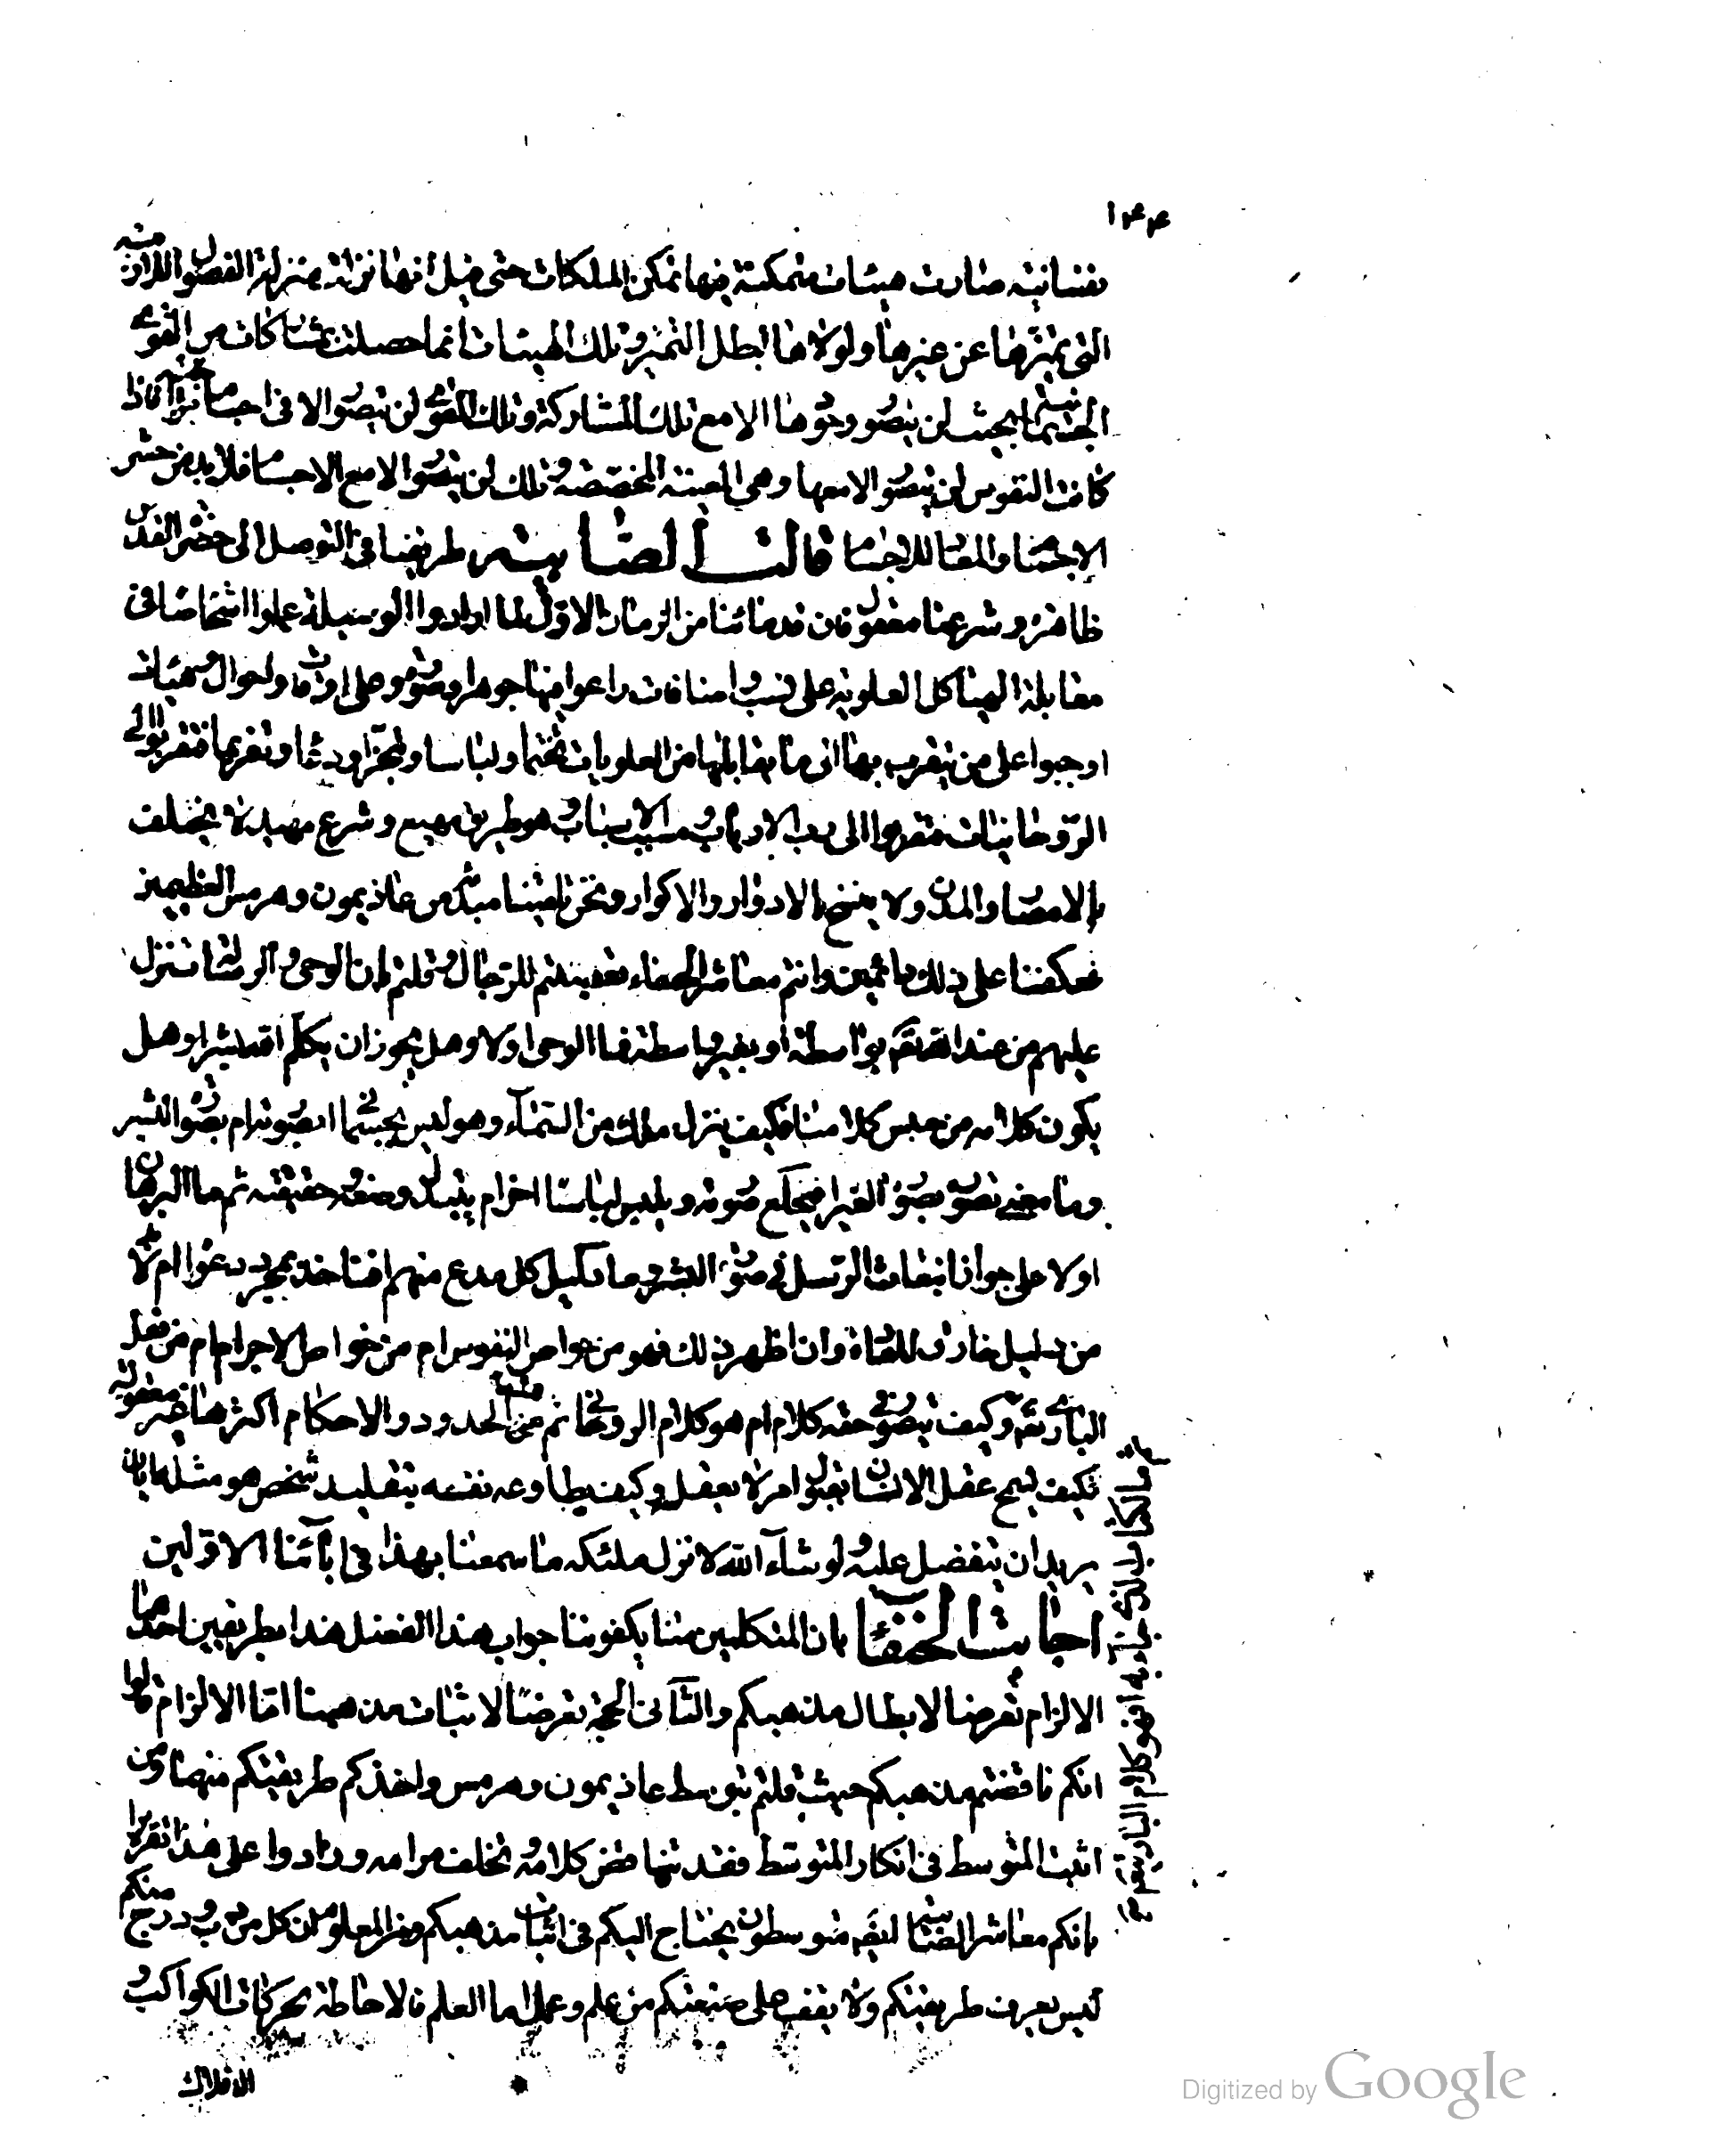 ١٤٤
نفسانية صارت هيئات متمكنة فيها تمكن الملكات حتى قيل انها نزلت منزلة الفصول اللازمة
التي يميزها عن غيرها ولولاها لبطل التميز وتلك الهيئات انما حصلت بمشاركات من القوى
الجسمانية بحيث لن يتصور وجودها الا مع تلك المشاركة وتلك القوى لن يتصور الا في اجسام مزاجية فاذا
كانت النفوس لن يتصور الا معها وهي المعينة المخصصة وتلك لن يتصور الا مع الاجسام فلا بد من حشر
الاجسام والمعاد للاجسام قالت الصابية طريقنا في التوصل الى حضرة القدس
ظاهرة وشرعنا معقول فان قدمائنا من الزمان الاول لما ارادوا الوسيلة عملوا اشخاصا في
مقابلة الهياكل العلوية على نسب واضافات راعوا فيها جوهرا وصورة وعلى اوقات واحوال وهيئات
اوجبوا على من يتقرب بها الى ما يقابلها من العلويات تختما ولباسا وتبخرا ودعاء وتعزيما فتقربوا الى
الروحانيات فتقربوا الى رب الارباب ومسبب الاسباب وهو طريق مهيع وشرع مهيد لا يختلف
بالامصار والمدن ولا ينسخ بالادوار والاكوار ونحن تلقينا مبدأه من عاذيمون وهرمس العظيمين
فعكفنا على ذلك دائمين وانتم معاشر الحنفاء تعصبتم للرجال وقلتم بان الوحي والرسالة تنزل
عليهم من عند الله تعالى بواسطة او بغير واسطة فما الوحي اولا وهل يجوز ان يكلم الله بشرا وهل
يكون كلامه من جنس كلامنا وكيف ينزل ملك من السماء وهو ليس بجسماني ابصورته ام بصورة البشر
وما معنى تصوره بصورة الغير افيخلع صورته ويلبس لباسا اخر ام يتبدل وضعه وحقيقته ثم ما البرهان
اولا على جواز انبعاث الرسل في صورة البشر وما دليل كل مدع منهم افناخذ بمجرد دعواه ام لا بد
من دليل خارق للعادة وان اظهر ذلك فهو من خواص النفوس ام من خواص الاجرام ام من فعل
الباري تعالى وكيف يتصور في حقه كلام ام هو كلام الروحاني ثم هذه الحدود والاحكام اكثرها غير معقولة
فكيف يسمح عقل الانسان بقبول امر لا يعقل وكيف يطاوعه نفسه بتقليد شخص هو مثله ابان
يريد ان يتفضل عليه ولو شاء الله لانزل ملئكة ما سمعنا بهذا في ابائنا الاولين
اجابت الحنفاء بان المتكلمين منا يكفوننا جواب هذا الفصل هذا بطريقين احدهما
الالزام تعرضا لابطال مذهبكم والثاني الحجة تعرضا لاثبات مذهبنا اما الالزام قالوا
انكم ناقضتم مذهبكم حيث قلتم بتوسط عاذيمون وهرمس واخذكم طريقتكم منهما ومن
اثبت المتوسط في انكار المتوسط فقد تناقض كلامه وتخلف مرامه وزادوا على هذا تقريرا
بانكم معاشر الصابية ايضا متوسطون يحتاج اليكم في اثبات مذهبكم ومن المعلوم ان كل من دب ودرج منكم
ليس يعرف طريقتكم ولا يقف على صنعتكم من علم وعمل اما العلم فالاحاطة بحركات الكواكب و
الافلاك